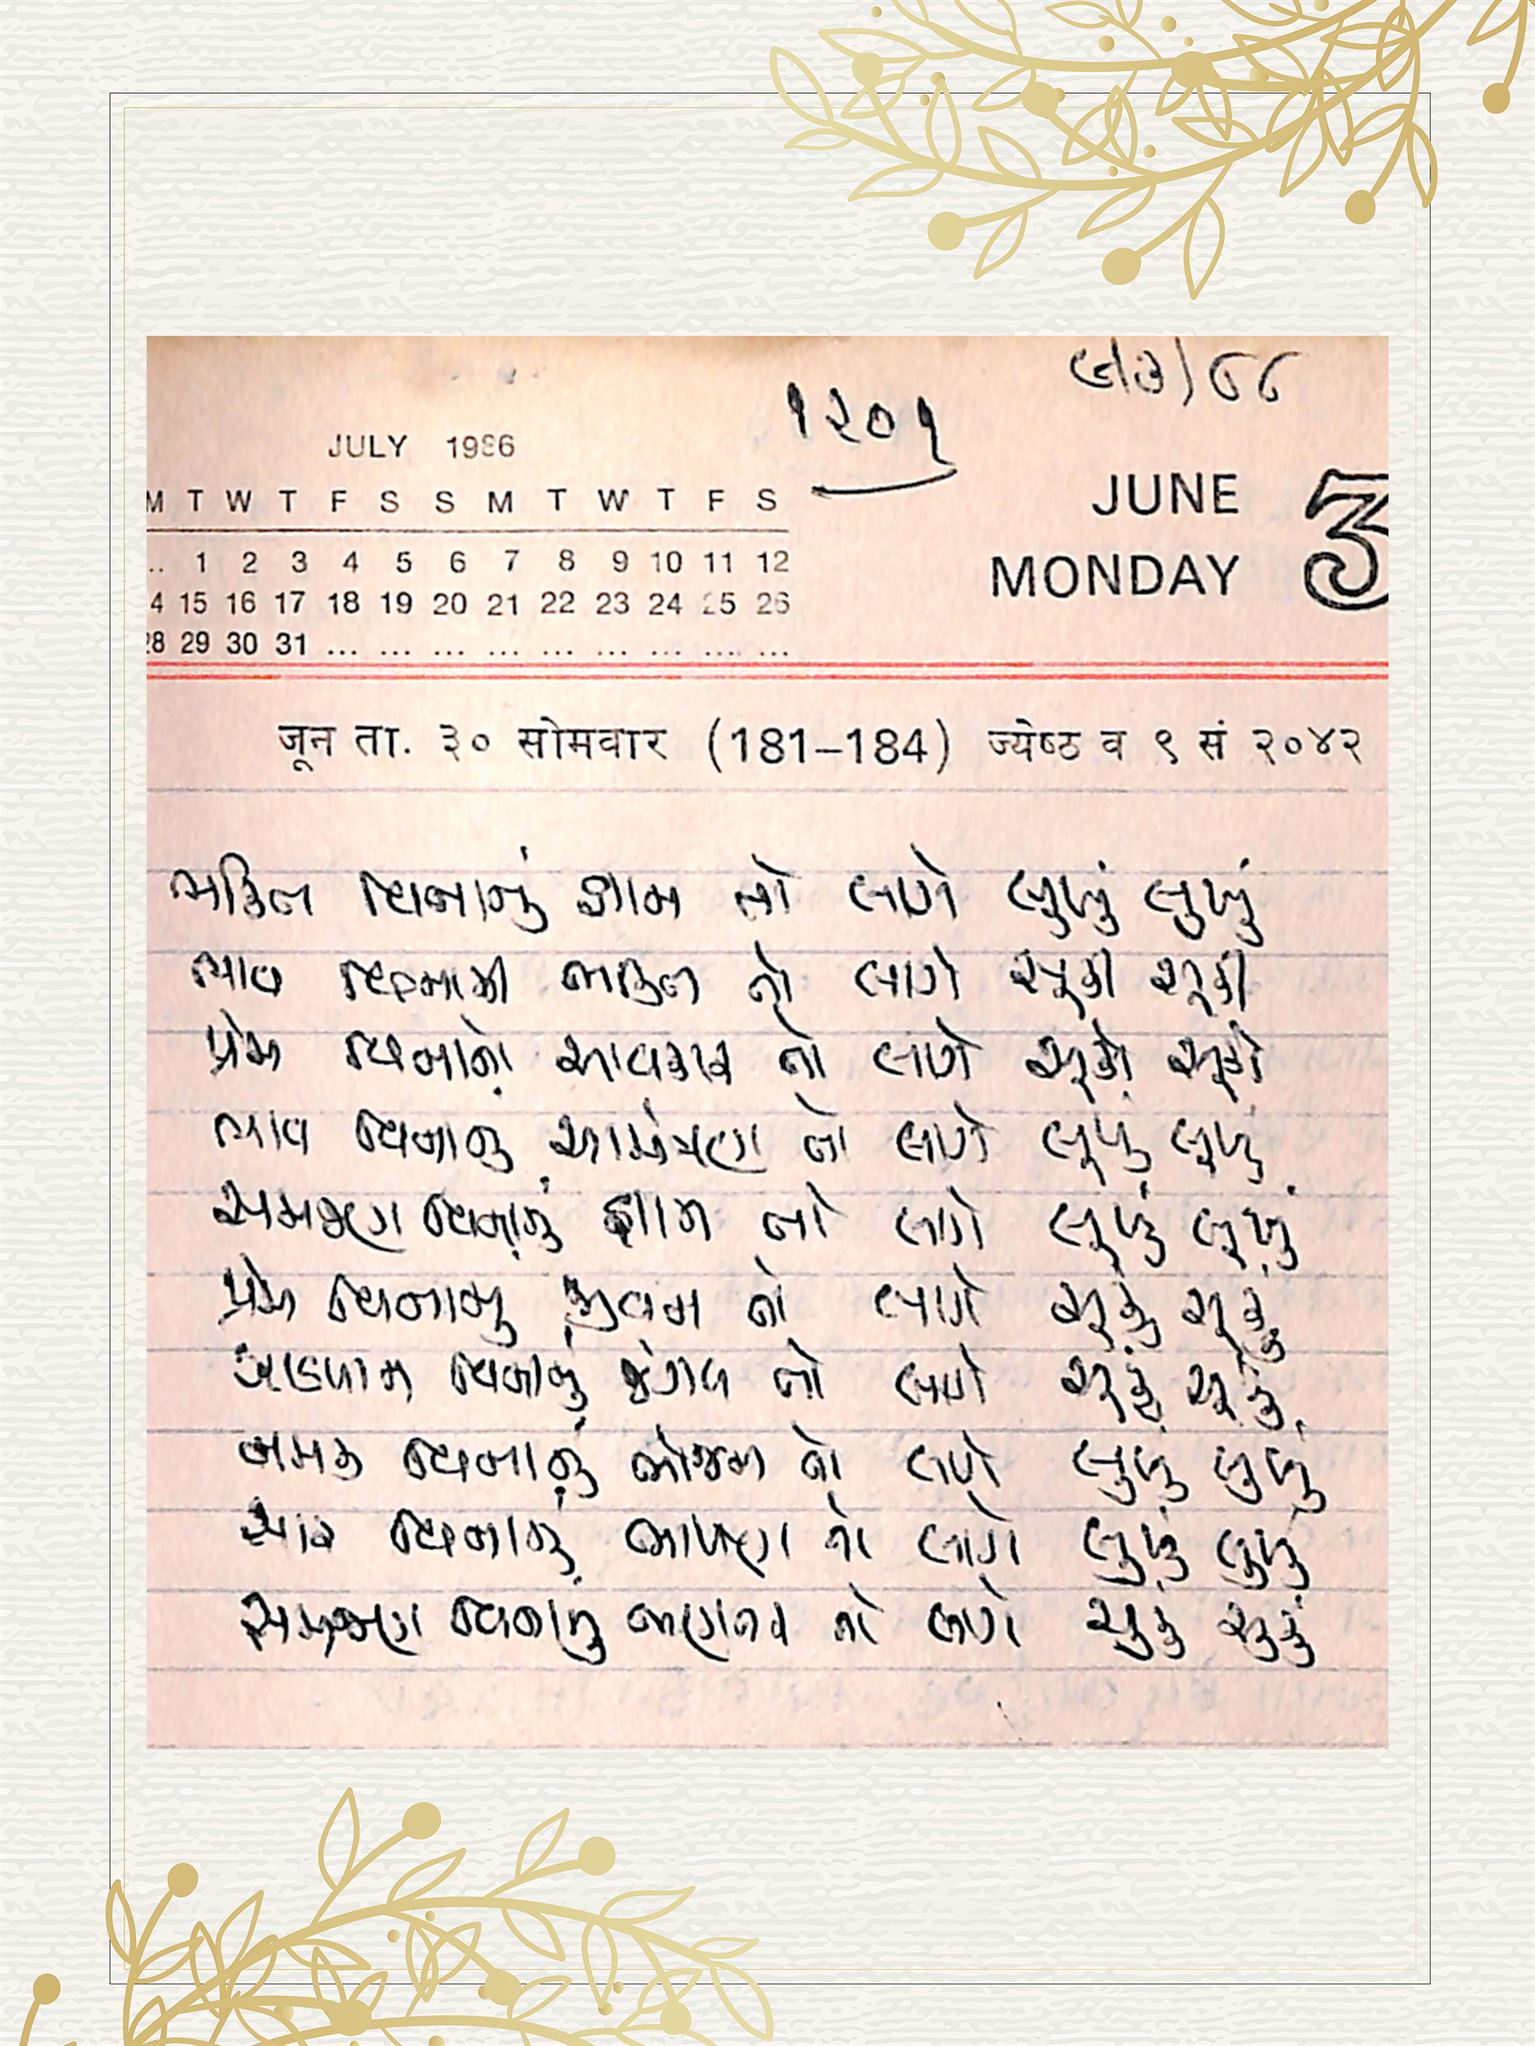 ૧૨૦૧
JULY 1986
M T W T F S S M T W T F S
.. 1 2 3 4 5 6 7 8 9 10 11 12
4 15 16 17 18 19 20 21 22 23 24 25 26
28 29 30 31 ... ... ... ... ... ... ... ... ...
JUNE 3
MONDAY
जून ता. ३० सोमवार (181–184) ज्येष्ठ व ९ सं २०४२
ભક્તિ વિનાનું જ્ઞાન તો લાગે લુખું લુખું
ભાવ વિનાની ભક્તિ તો લાગે સૂકી સૂકી
પ્રેમ વિનાનો આવકાર તો લાગે સૂકો સૂકો
ભાવ વિનાનું આમંત્રણ તો લાગે લૂખું લૂખું
સમજણ વિનાનું જ્ઞાન તો લાગે લૂખું લૂખું
પ્રેમ વિનાનું જીવન તો લાગે સૂકું સૂકું
ઝાડપાન વિનાનું જંગલ તો લાગે સૂકું સૂકું
નમક વિનાનું ભોજન તો લાગે લુખું લુખું
સાર વિનાનું ભાષણ તો લાગે લુખું લુખું
સમજણ વિનાનું ભણતર તો લાગે સુકું સુકું